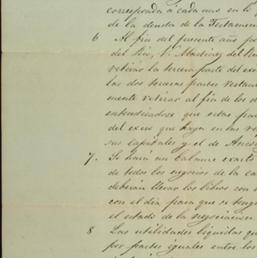 corresponda á cada uno en la
de la deuda de la Testamen
6 Al fin del presente año po
del Rio, V. Martinez del Rio
retirar la tercera parte del exce
las dos terceras partes restan
mente retirar al fin de los do
entendiendose que estas par
del exceso que haya en las
sus capitales y el de Anso
7. Se hará un balance exacto
de todos los negocios de la ca
deberán llevar los libros con
con el dia para que se tenga
el estado de la negociacion
8 Las utilidades liquidas que
por partes iguales entre los